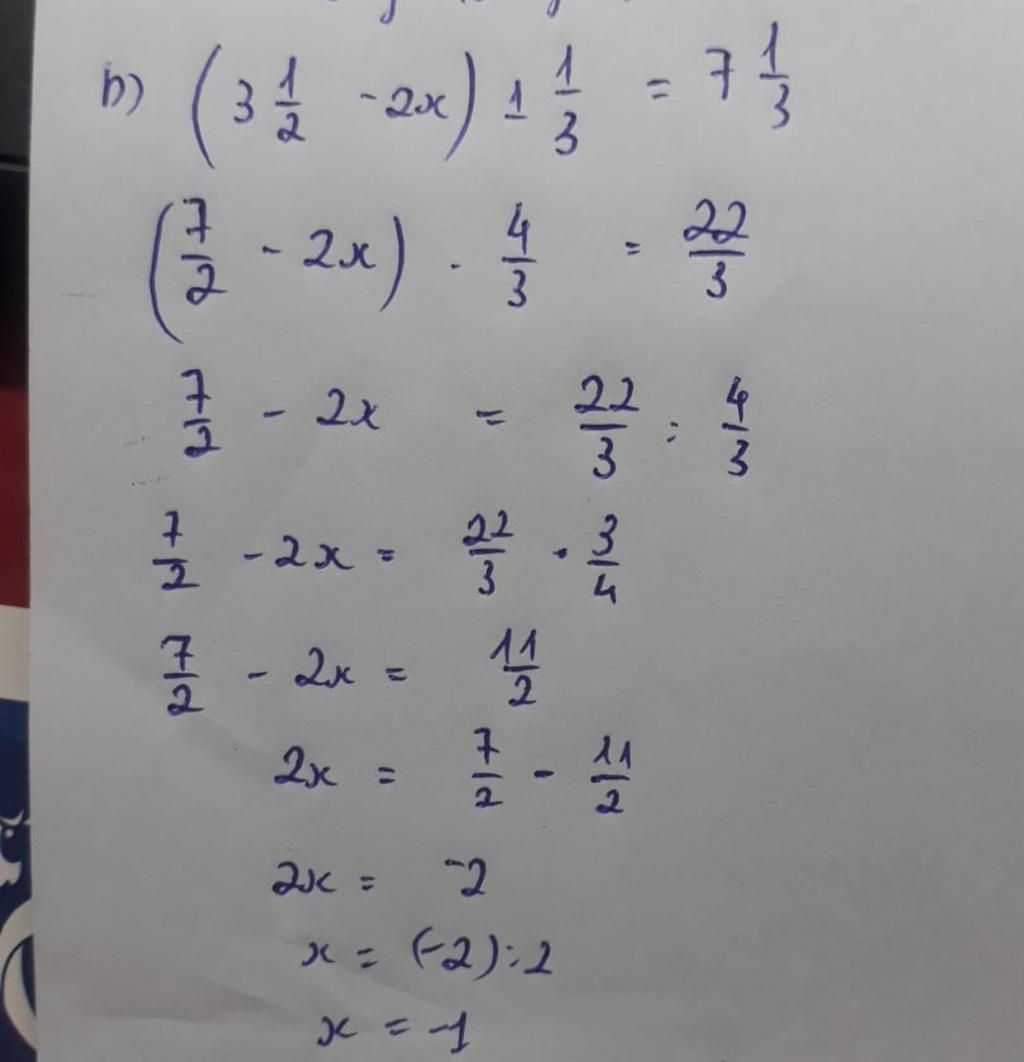 b) (3 1/2 - 2x) 1 1/3 = 7 1/3
(7/2 - 2x) . 4/3 = 22/3
7/2 - 2x = 22/3 : 4/3
7/2 - 2x = 22/3 . 3/4
7/2 - 2x = 11/2
2x = 7/2 - 11/2
2x = -2
x = (-2) : 2
x = -1